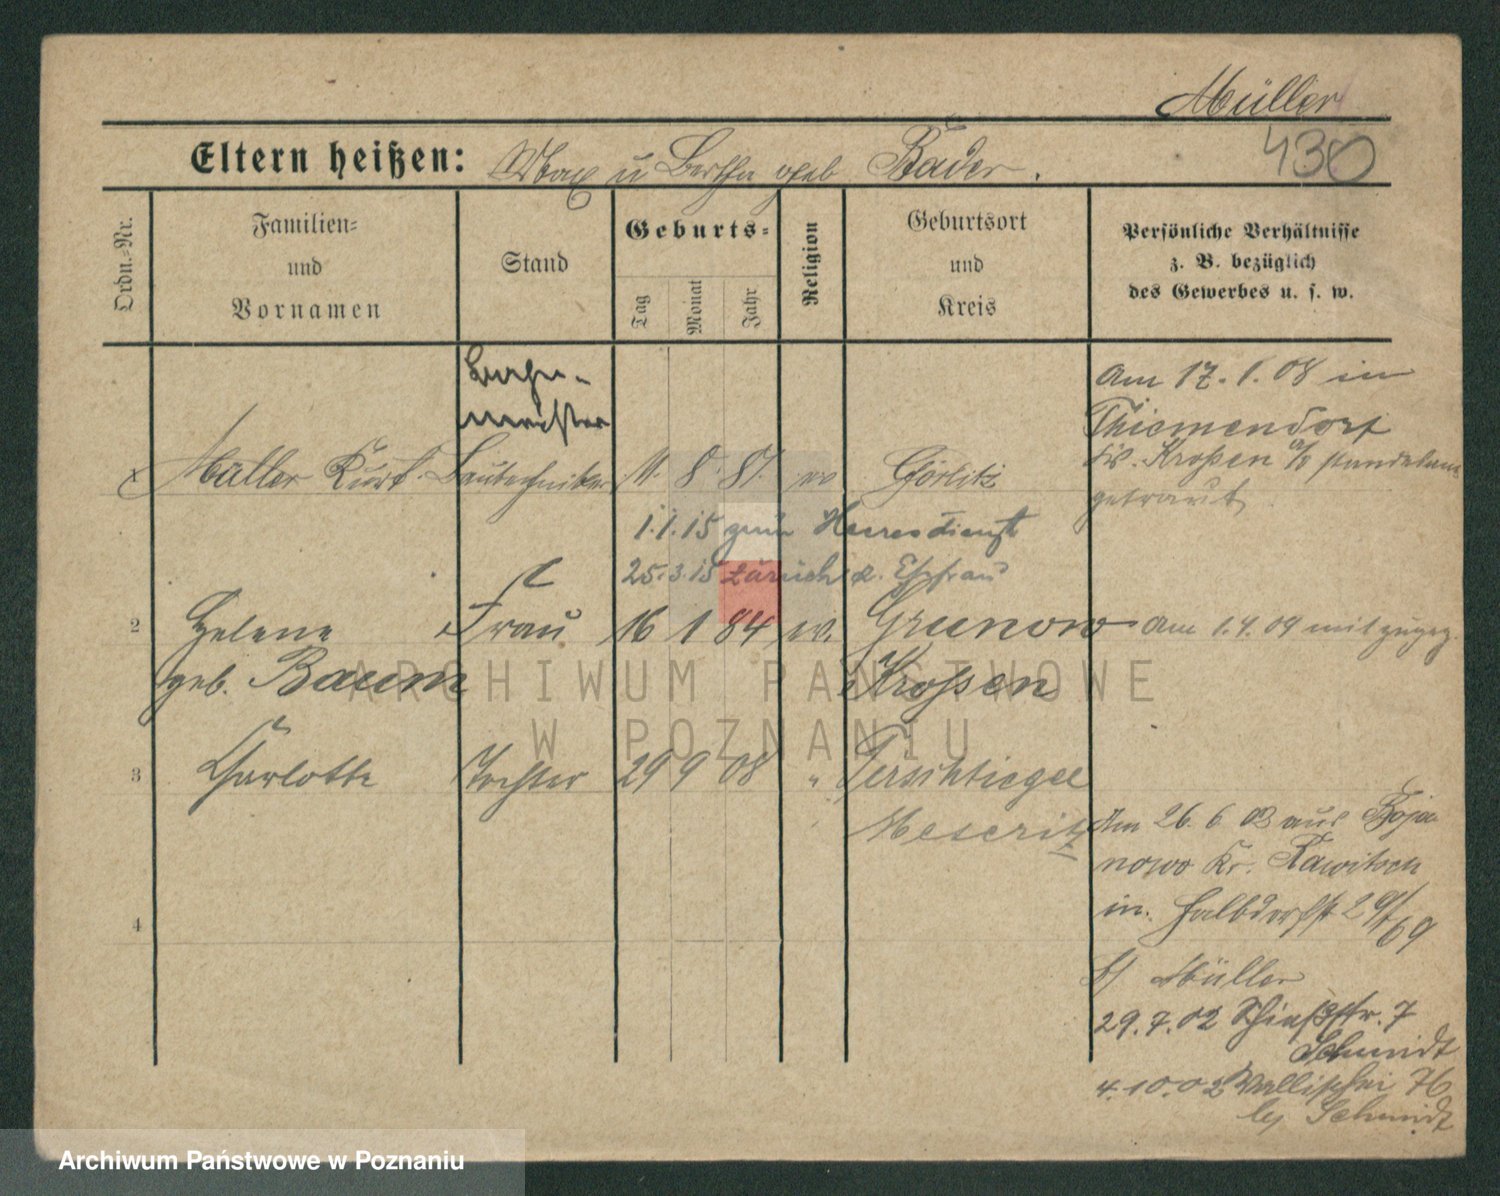 Müller
430
Eltern heißen: Max u Bertha geb Bader.
Ordn.-Nr.
Familien-
und
Vornamen
Stand
Geburts-
Tag
Monat
Jahr
Religion
Geburtsort
und
Kreis
Persönliche Verhältnisse
z. B. bezüglich
des Gewerbes u. s. w.
meister
1 Müller Kurt Bautechniker 11. 8. 81. ev Görlitz
Am 17. 1. 08 in
Thiemendorf
Kr. Kroßen a/O standesamt
getraut
1.1.15 zum Heeresdienst
25.3.15 zurück z. Ehefrau
2 Helene Frau 16 1 84 ev. Grunow
Am 1.4.09 mit zugez.
geb. Baum Kroßen
3 Charlotte Tochter 29 9 08 " Tirschtiegel
Meseritz
Am 26. 6. 02 aus Boja
nowo Kr. Rawitsch
in Halbdorfstr 29
b/ Müller
4
29.7.02 Schießstr. 7
Schmidt
4.10.02 Wallischei 76
bei Schmidt
ARCHIWUM PAŃSTWOWE
W POZNANIU
Archiwum Państwowe w Poznaniu